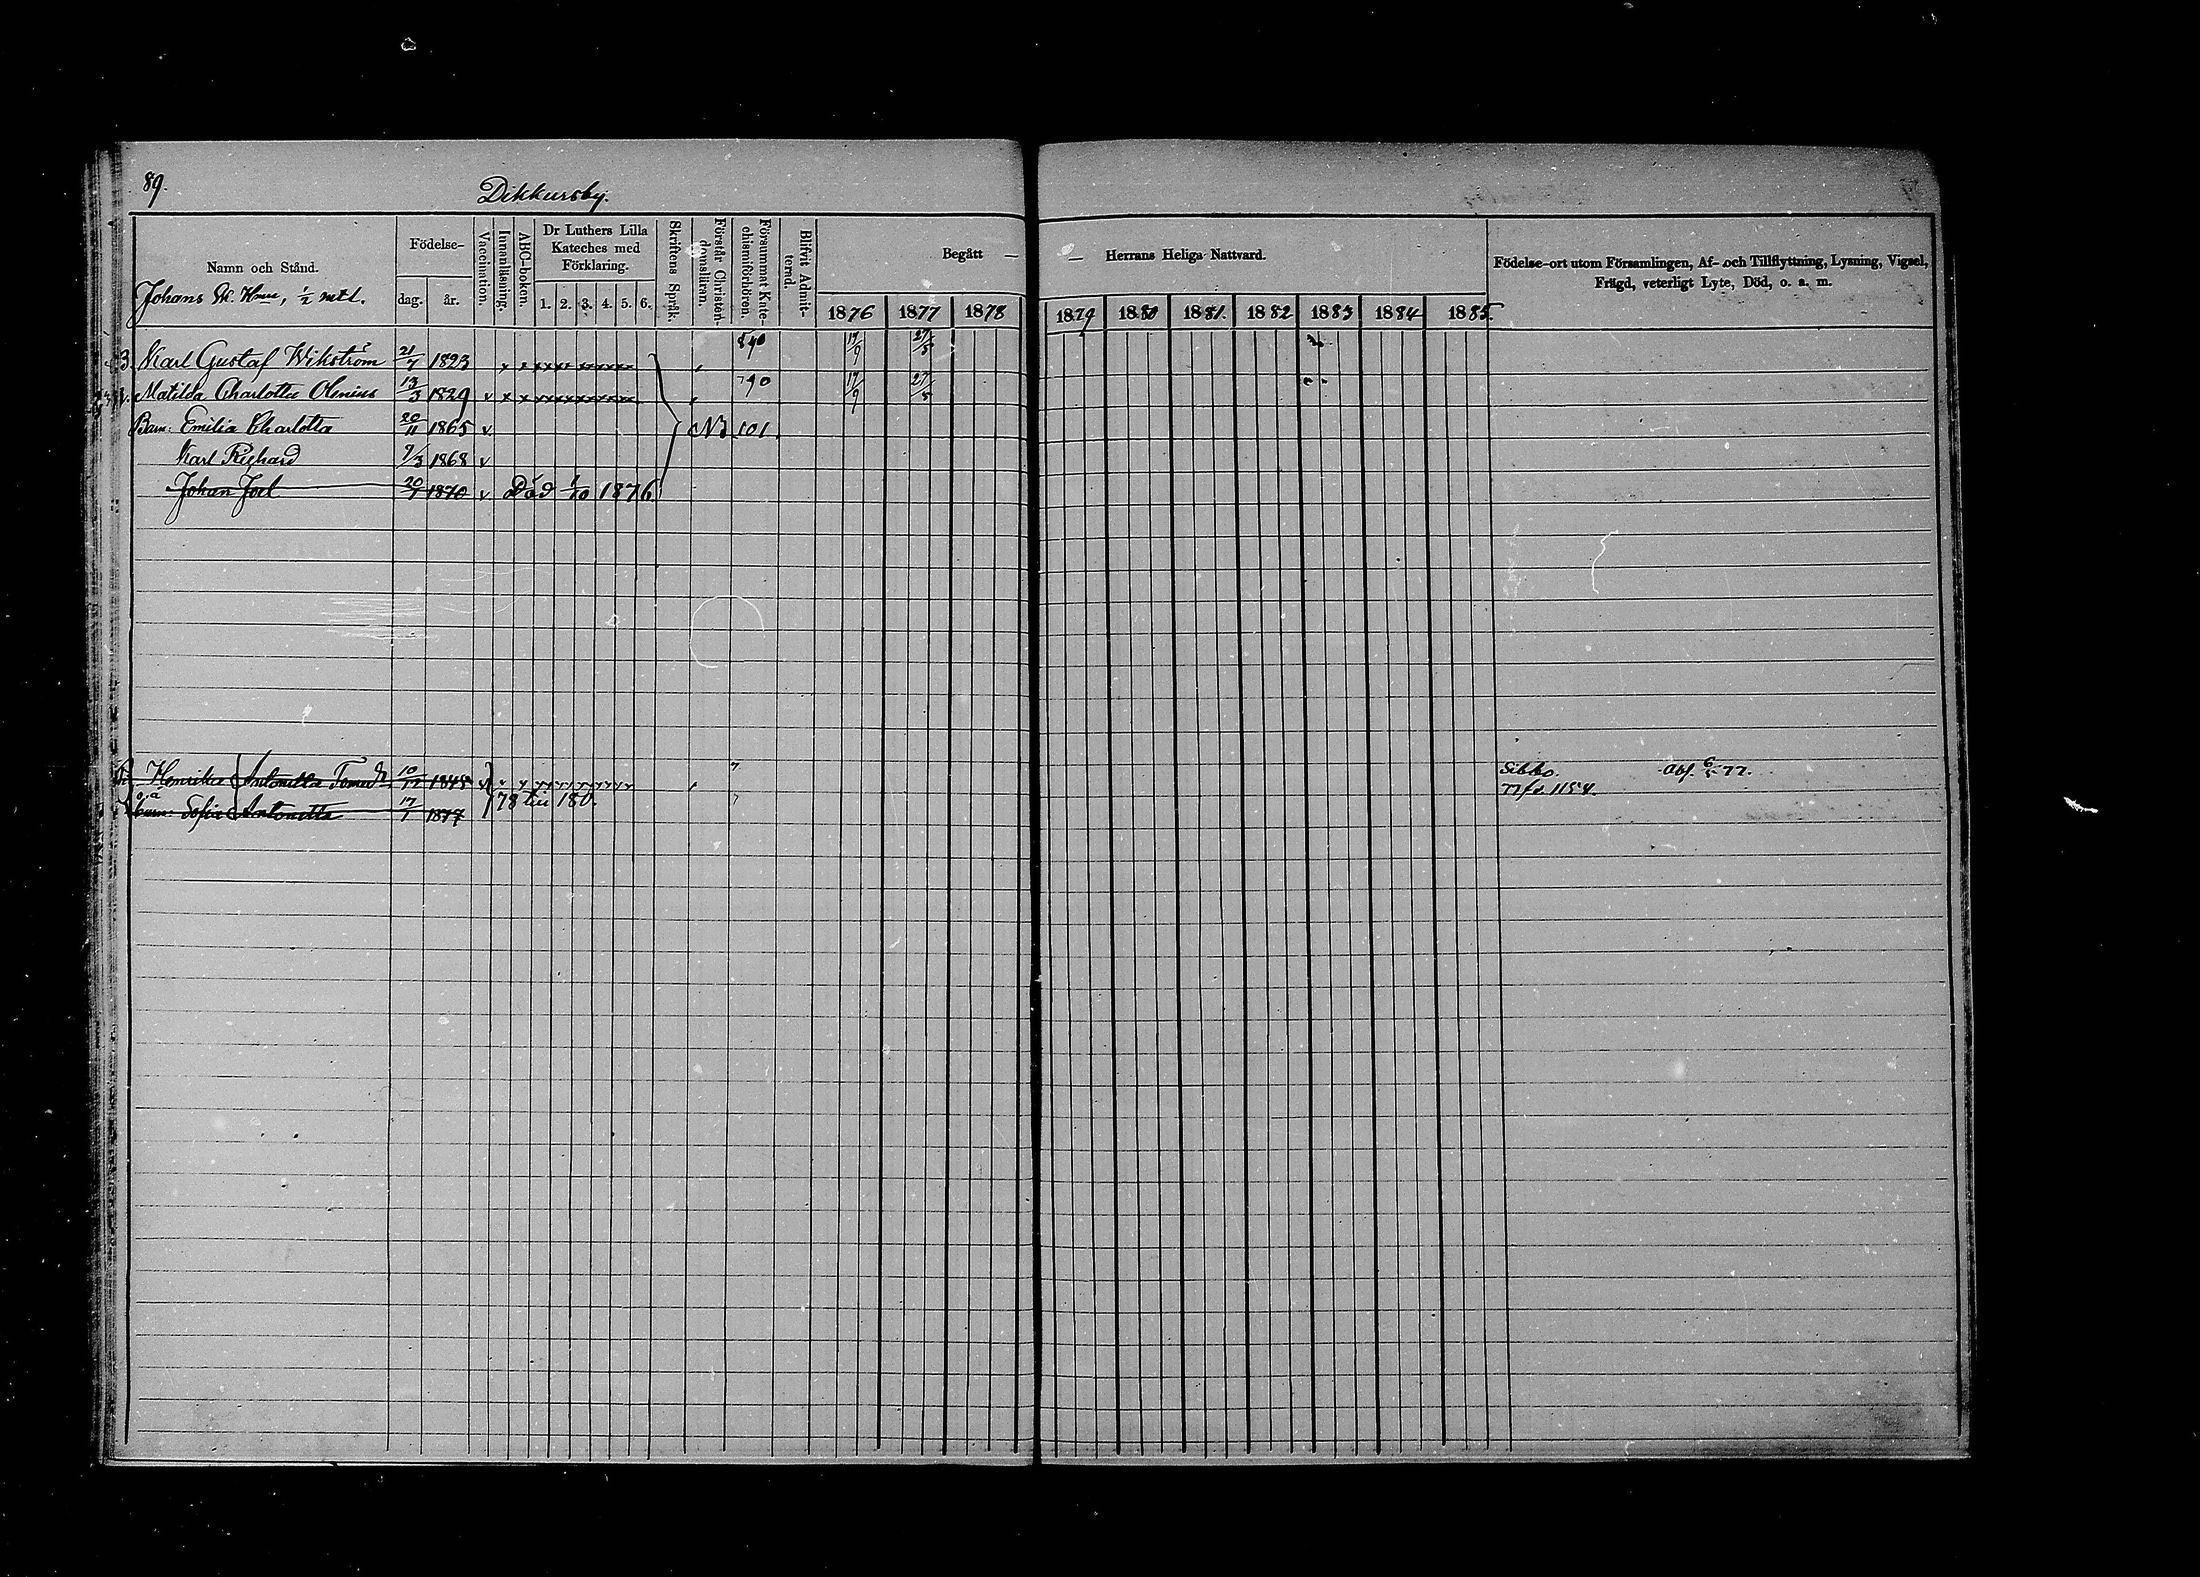 89.
Dikkursby.
Namn och Stånd.
Johans 1/2 mtl.
Födelse-
dag. år.
Vaccination.
Innanläsning.
ABC-bokon.
Dr Luthers Lilla Kateches med Förklaring.
1. 2. 3. 4. 5. 6.
Skriftens Språk.
Förstår Christendomsläran.
Försummat Katechismiförhören.
Blifvit Admitterad.
Begått — — Herrans Heliga Nattvard.
1876 1877 1878 1879 1880 1881. 1882 1883 1884 1885.
Födelse-ort utom Församlingen, Af- och Tillflyttning, Lysning, Vigsel,
Frägd, veterligt Lyte, Död, o. a. m.
Karl Gustaf Wikström 21/7 1823 17/9 27/5
Matilda Charlotta Olenius 13/3 1829 v 790 17/9 27/5
Barn: Emilia Charlotta 20/11 1865 v N 101.
Karl Richard 9/3 1868 v
Johan Joel 20/1 1870 v Död 1/10 1876
Henrika Antonetta 10/11 1845 v Sibbo. Abf. 6/5 77.
78 till 180.
o.ä. barn: Sofia Antonetta 17/1 1877